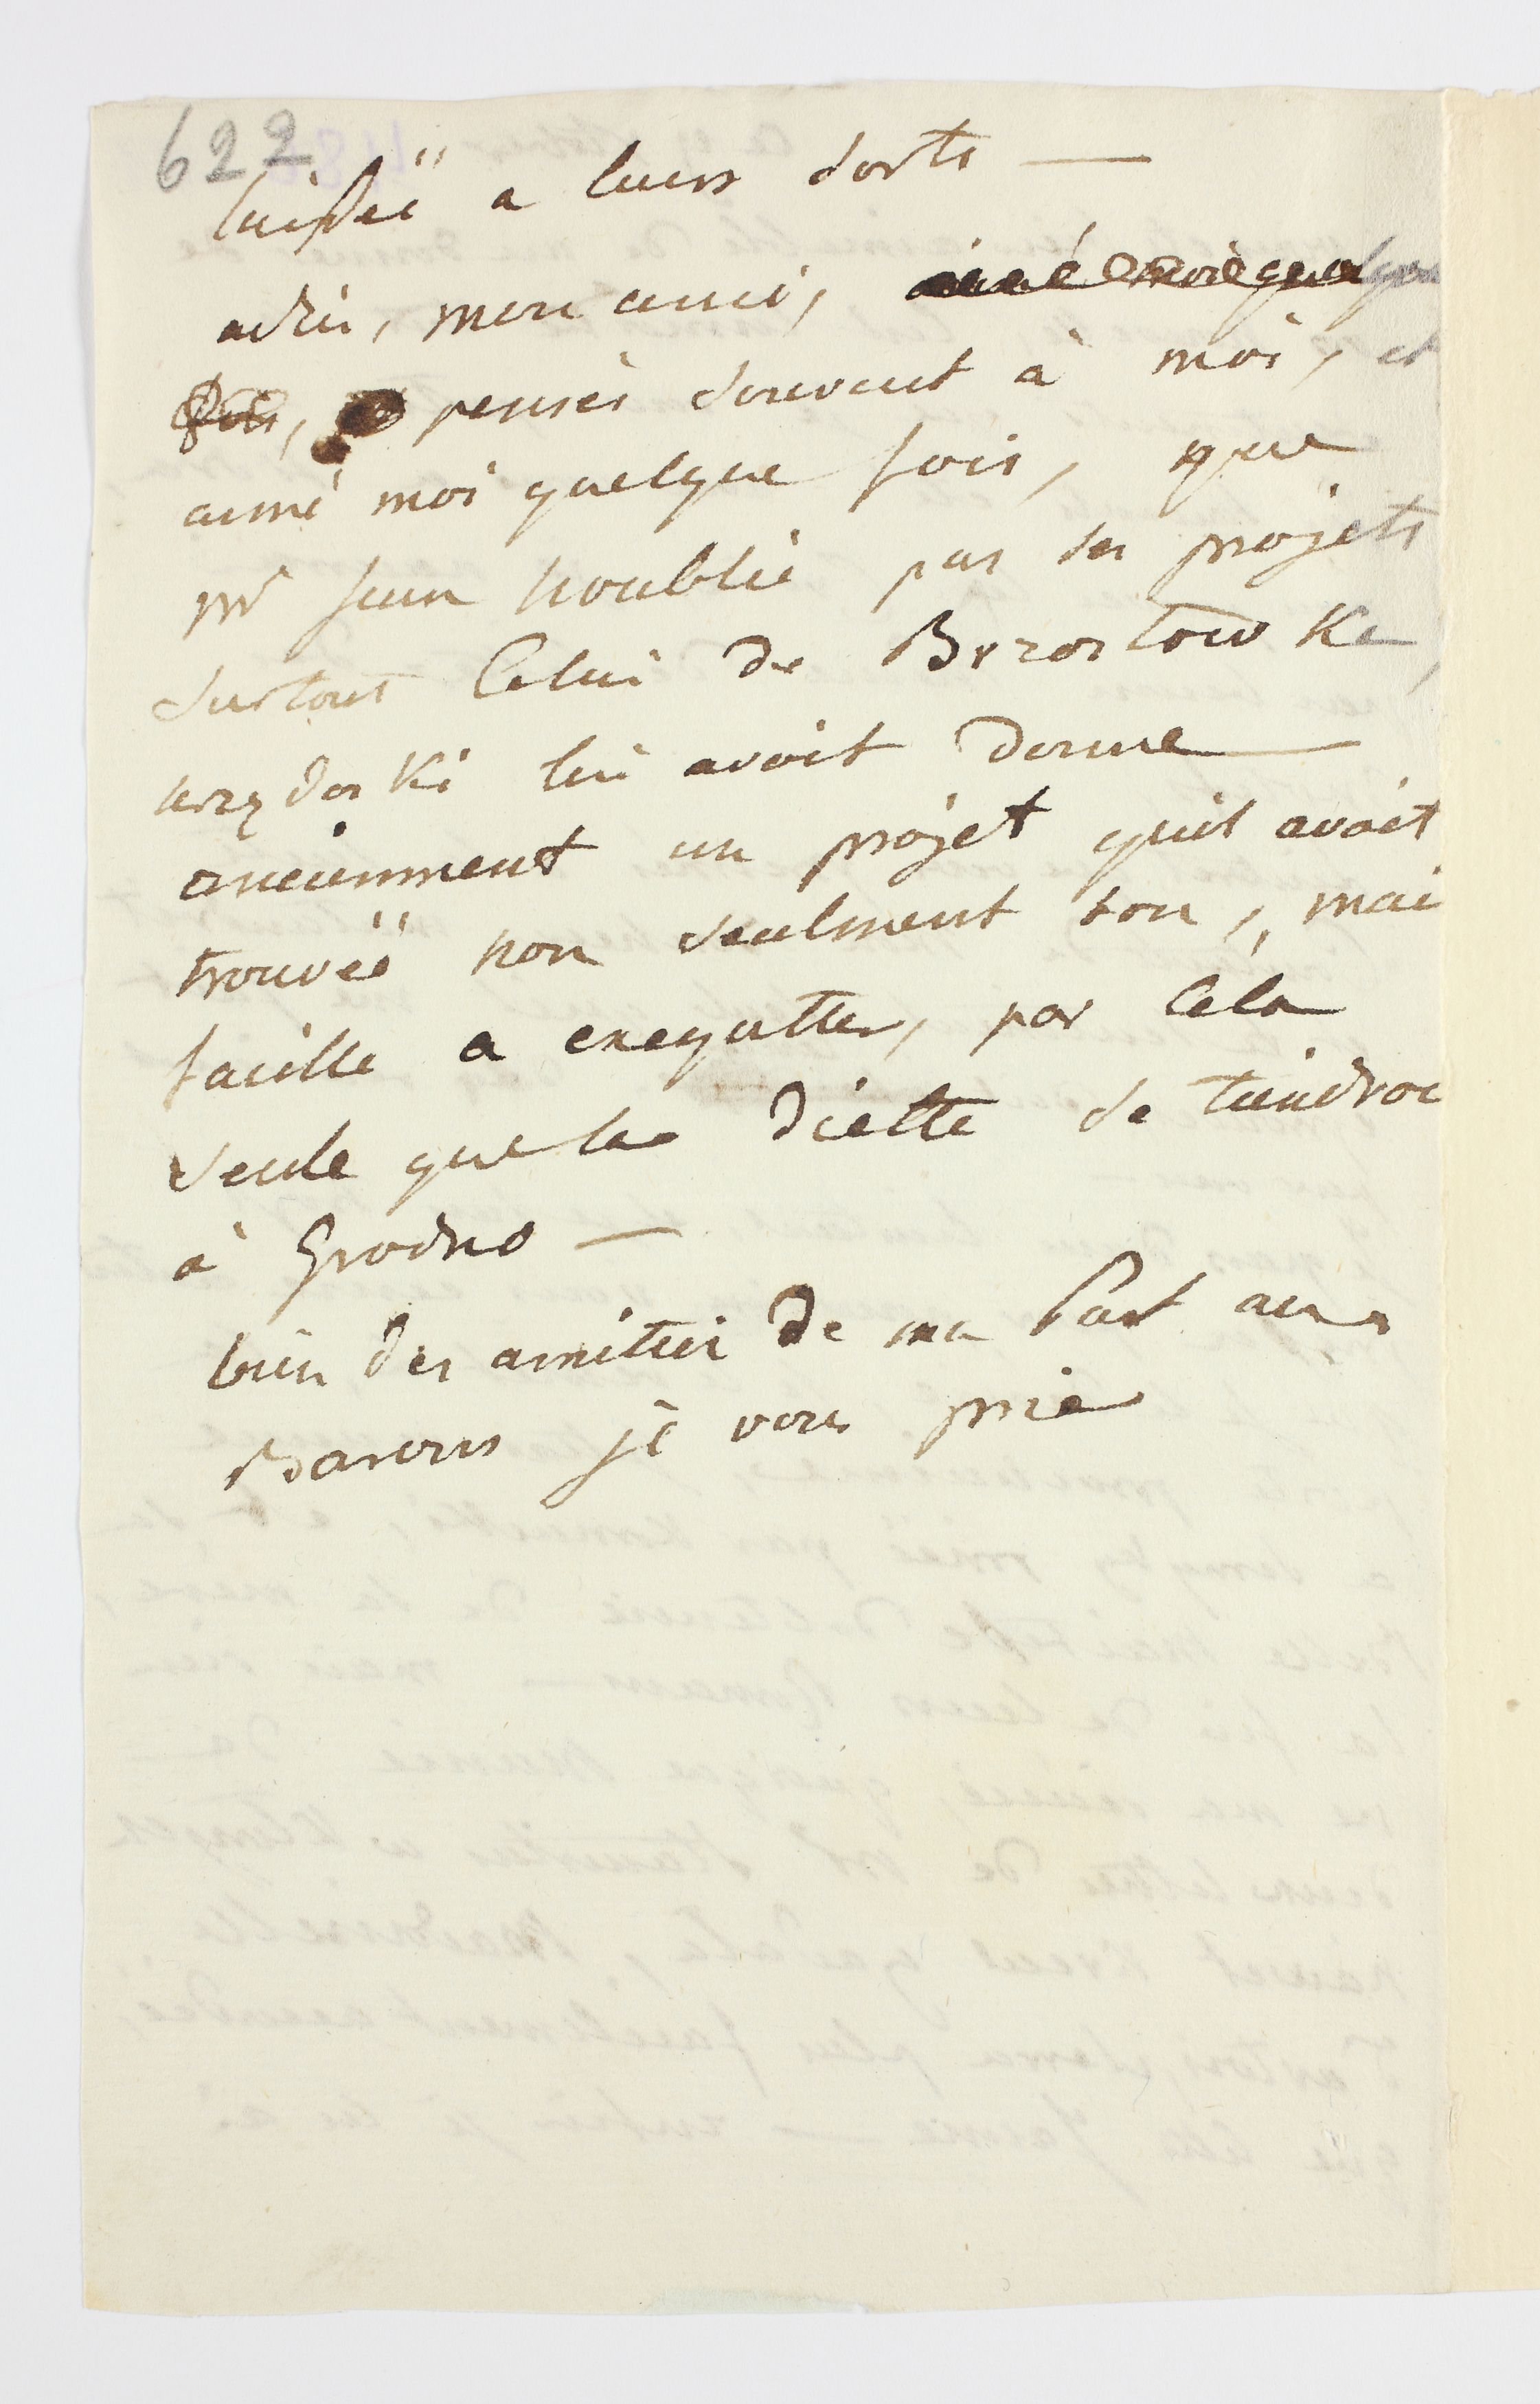 622
laissëe a leurs sorts —
adiu, mon ami, aimé moi quelque
fois, pensés souvent à moi, et
aimé moi quelque fois, que
mr n'oublié pas ses projets
surtout Celui de Brzostowka,
lui avoit donne
anciennement un projet quil avait
trouvéë non seulment bon, mai
facille a exequtter, par Céla
seule que la diette se tiendroi
à Grodno —
bien des amitiéi de ma Part aux
Barons je vous prie